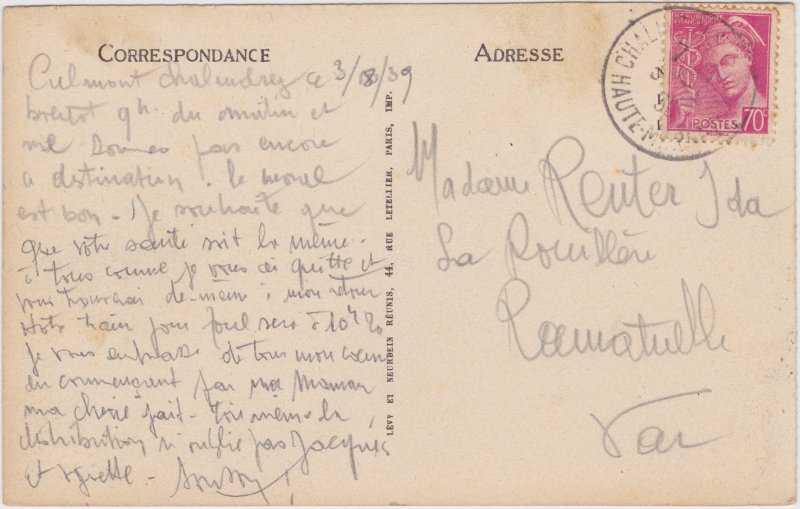 CORRESPONDANCE
Culmont Chalindrey ce 3/8/39
bientot 9h. du matin et
pas encore
a destination. le moral
est bon. Je souhaite que
que votre santé soit la même
à tous comme je vous ai quitté et
vous de-même à mon retour
Notre train pour Toul sera à 10h20
Je vous embrasse de tous mon coeur
en commençant par ma Maman
ma cherie fait - toi même la
distribution n oublie pas Jacques
et
ADRESSE
Madame Reuter Ida
La Rouillère
Ramatuelle
Var
LÉVY ET NEURDEIN RÉUNIS, 44, RUE LETELLIER, PARIS, IMP.
RÉPUBLIQUE
FRANÇAISE
POSTES 70c
CHALIN
HAUTE-M